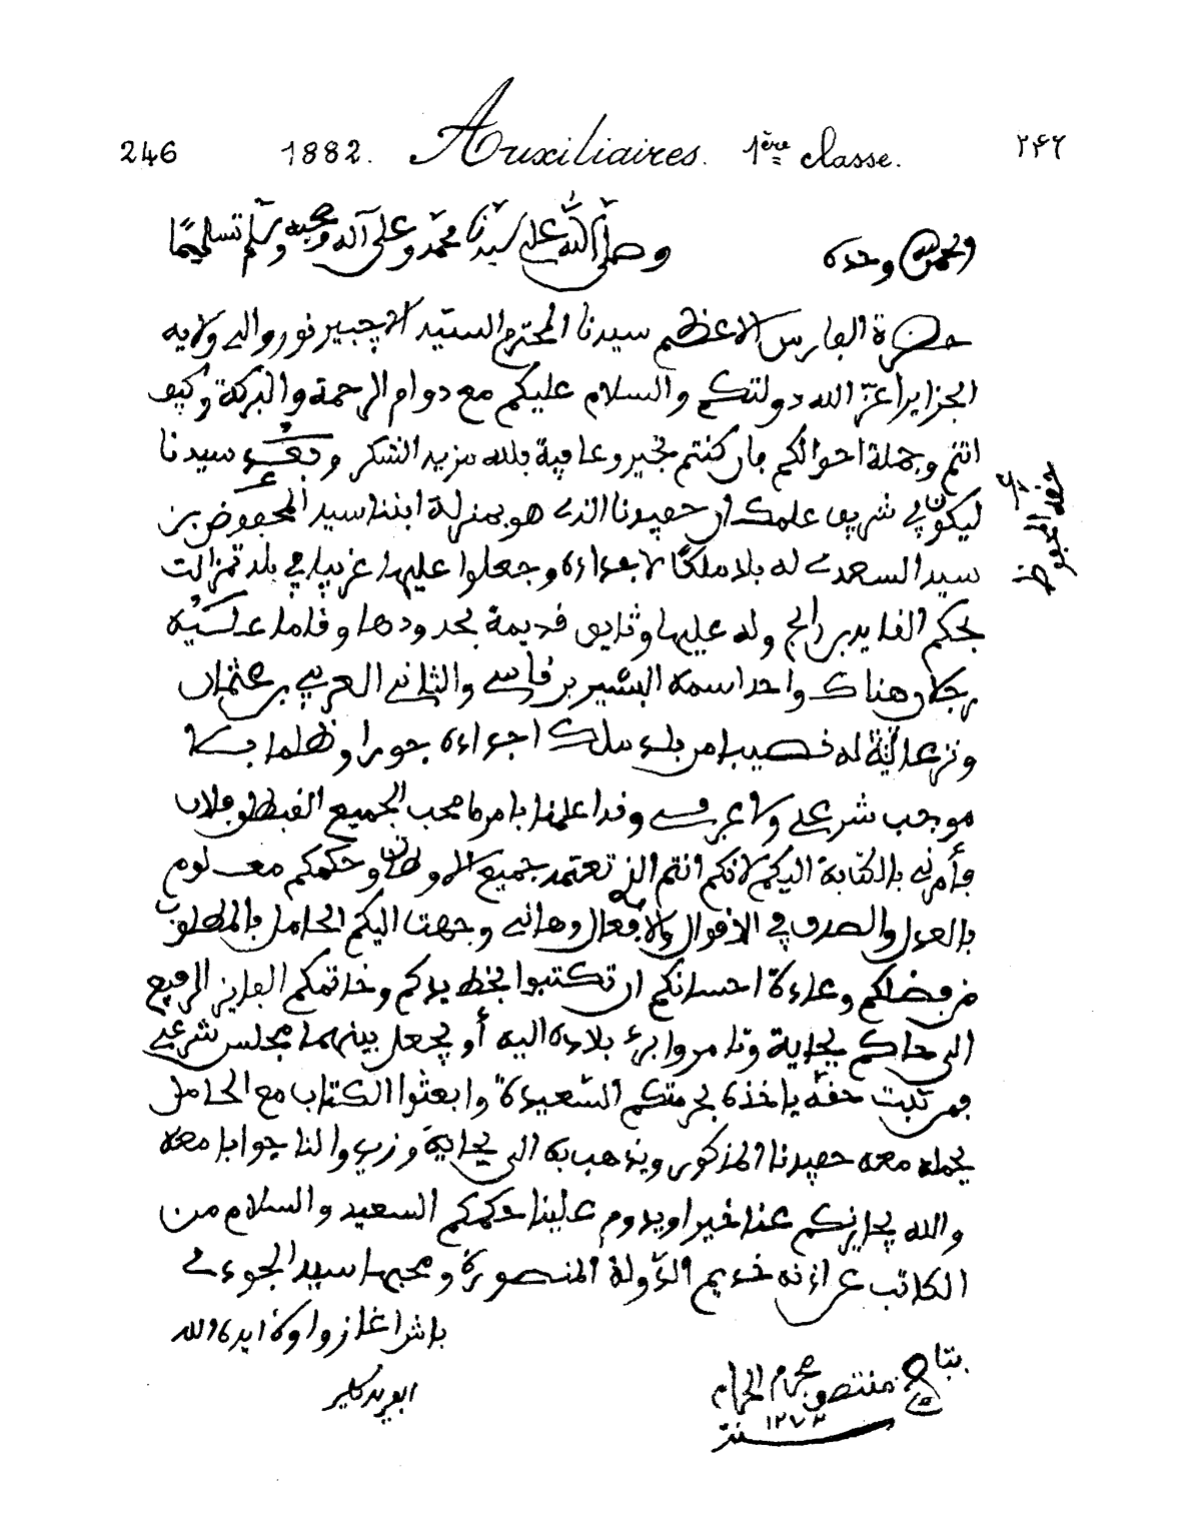 246 1882. Auxiliaires. 1ère classe. ٢٤٦
والحمد لله وحده وصلى الله على سيدنا محمد وعلى آله وصحبه وسلم تسليمًا
حضرة الفارس الاعظم سيدنا المحترم السيد الاجنير نور والى ولاية
الجزاير اعزّ الله دولتكم والسلام عليكم مع دوام الرحمة والبركة وكيف
انتم وجملة احوالكم فان كنتم بخير وعافية فلله مزيد الشكر سيدنا
ليكون في شريف علمك ان حفيدنا الذي هو بمنزلة ابننا سيد المحفوض بن
سيد السعدي له بلاد ملكًا لاجداده وجعلوا عليها غريبا في بلد تمزالت
بحكم القايد بن رابح وله عليها وثايق قديمة بحدودها وقاما
رجلان هناك واحد اسمه البشير بن قاسي والثاني العربي بن عثمان
ونزعا له نصيبا من بلد ملك اجداده جورا وظلما بلا
موجب شرعي ولا عرفي وقد اعلمنا بامره محب الجميع القبطان فلان
وأمرني بالكتابة اليكم لانكم انتم الذي تعتمد جميع الاوطان وحكمكم معلوم
بالعدل والصدق في الاقوال والافعال وهاني وجهت اليكم الحامل بالمطلوب
من فضلكم وعادة احسانكم ان تكتبوا بخط يدكم وخاتمكم الفايز الرفيع
الى حاكم بجاية وتامروا برد بلاده اليه أو يجعل بينهما مجلس شرعي
فمن ثبت حقه ياخذه بحرمتكم السّعيدة وابعثوا الكتاب مع الحامل
يحمله معه حفيدنا المذكور ويذهب به الى بجاية وزيدوا لنا جوابا معه
والله يجازيكم عنا خيرا ويدوم علينا حكمكم السعيد والسلام من
الكاتب عن اذنه خديم الدّولة المنصورة ومحبها سيد الجودي
باش اغا زواوة ايده الله
بتا منتصف محرام الحرام
سنة ١٢٧٣
حفيد المحفوض